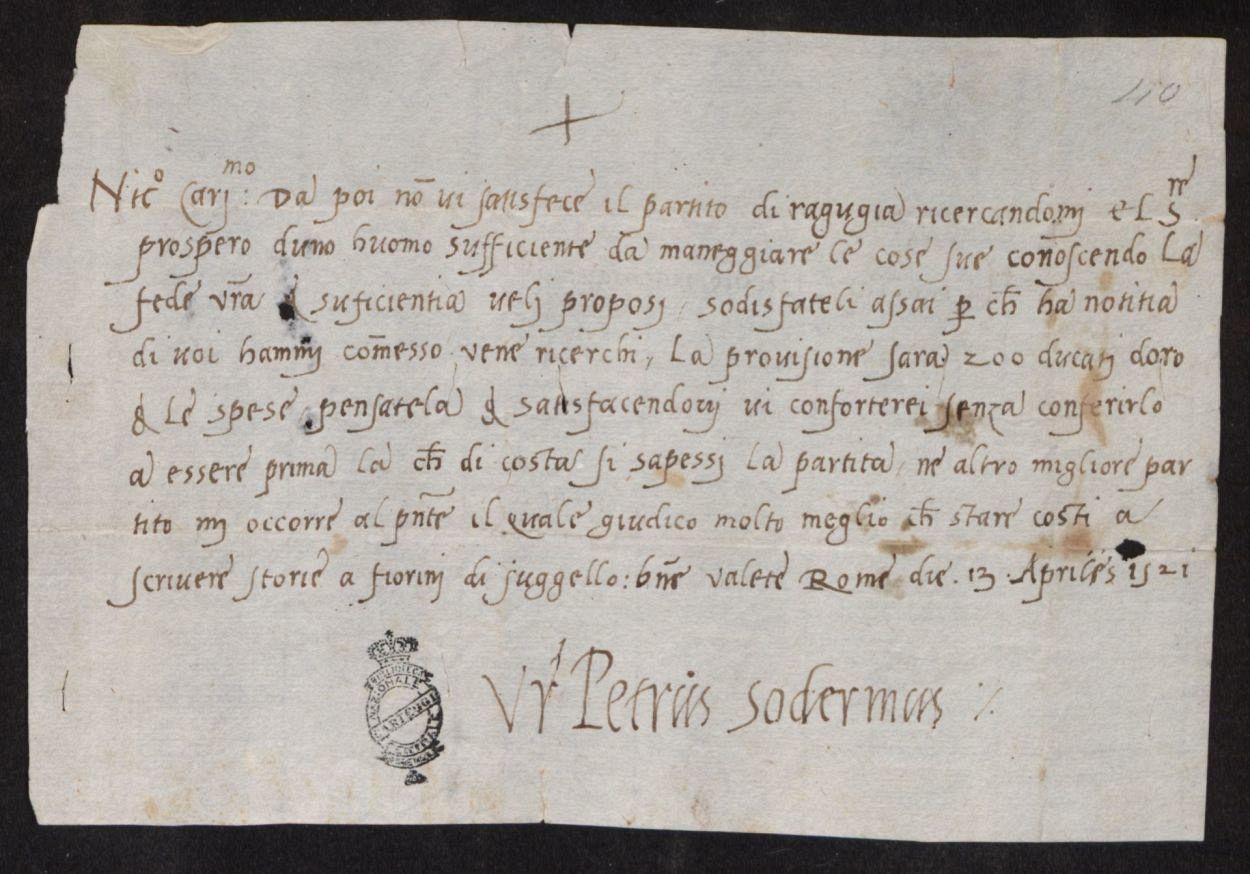 110
Nicº Carjmo: Da poi nō vi satisfece il partito di ragugia ricercandomj el Sre
prospero d'uno huomo sufficiente da maneggiare le cose sue conoscendo la
fede vr̄a & suficientia velj proposj, sodisfateli assai p̱ ch̄ ha notitia
di voi hammj com̄esso vene ricerchi, La provisione sara 200 ducatj doro
& le spese, pensatela & satisfacendovj vi conforterei senza conferirlo
a essere prima la ch̄ di costa si sapessj la partita, ne altro migliore par
tito mj occorre al pn̄te il quale giudico molto meglio ch̄ stare costi a
scrivere storie a fiorinj di suggello: bn̄e valete Rome die. 13. Aprilis 1521
Vr̄ Petrus Soderinus
BIBLIOTECA NAZIONALE CENTRALE
CARTEGGI